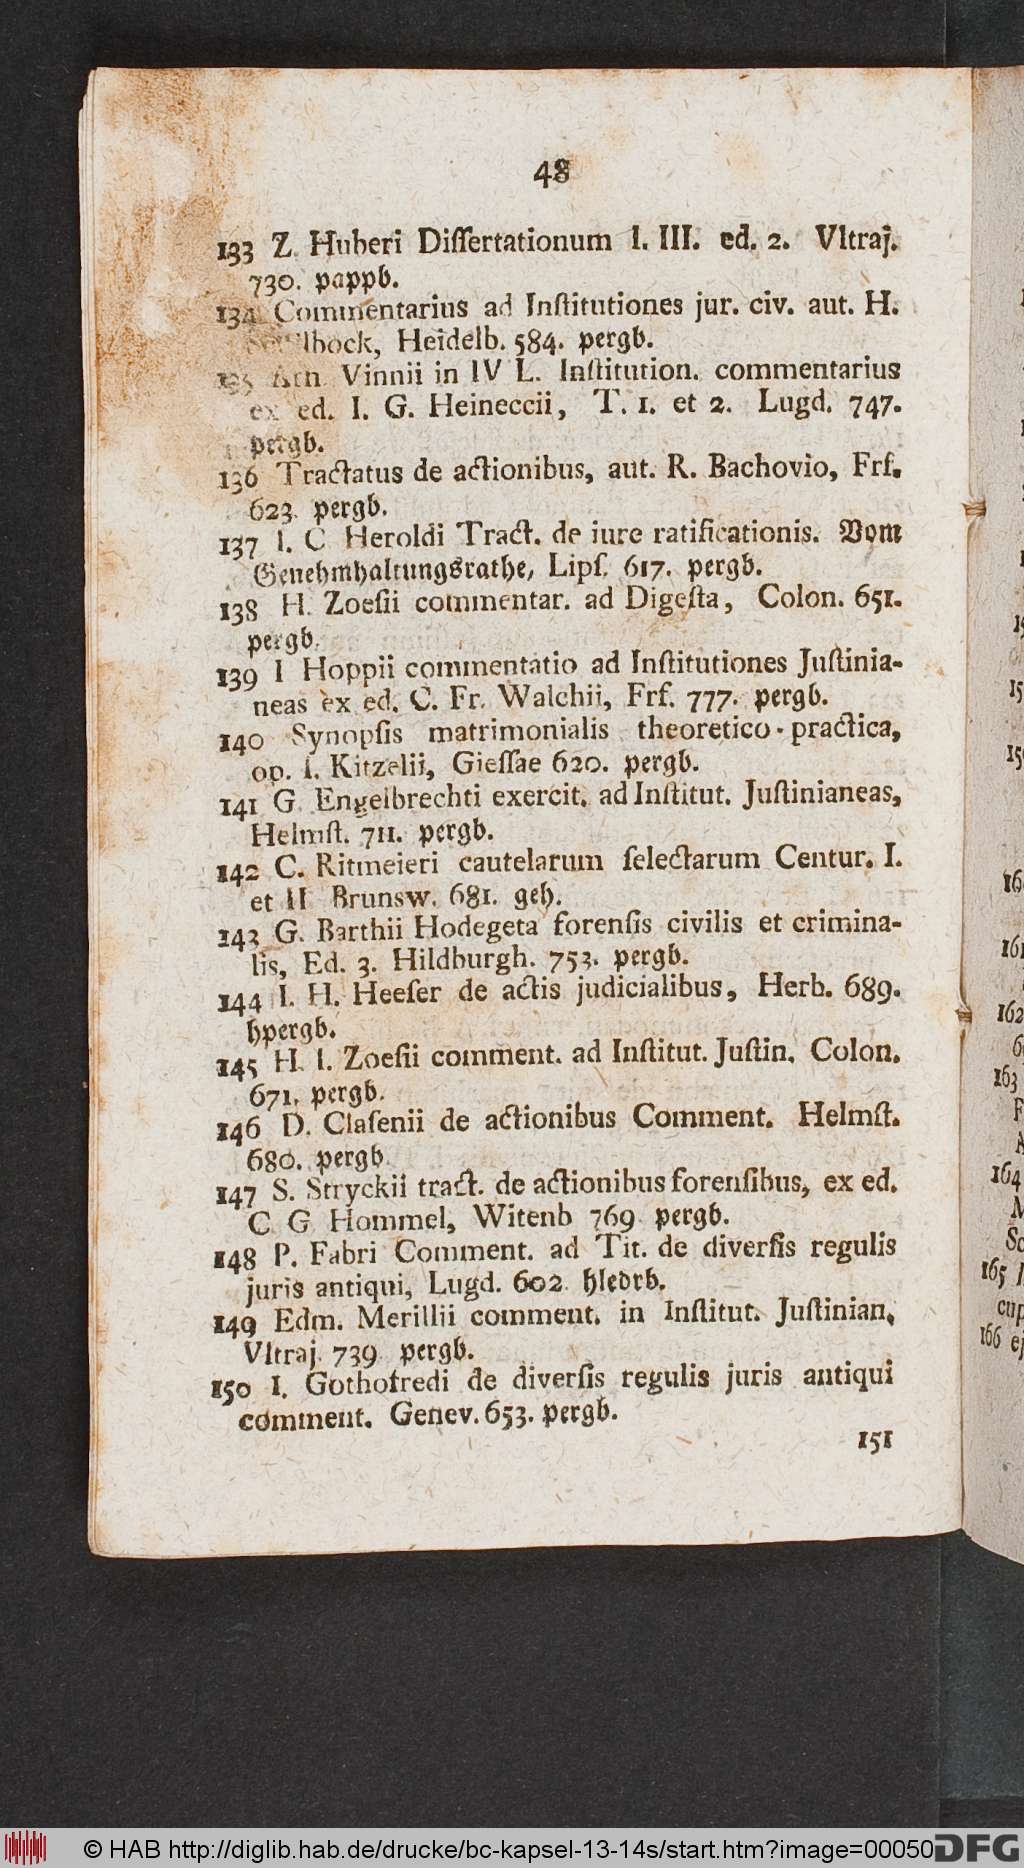 48
133 Z. Huberi Diſſertationum I. III. ed. 2. Vltraj.
730. pappb.
134 Commentarius ad Inſtitutiones jur. civ. aut. H.
Heidelb. 584. pergb.
135 Arn. Vinnii in IV L. Inſtitution. commentarius
ex ed. I. G. Heineccii, T. 1. et 2. Lugd. 747.
pergb.
136 Tractatus de actionibus, aut. R. Bachovio, Frf.
623. pergb.
137 I. C. Heroldi Tract. de iure ratificationis. Vom
Genehmhaltungsrathe, Lipſ. 617. pergb.
138 H. Zoeſii commentar. ad Digeſta, Colon. 651.
pergb.
139 I Hoppii commentatio ad Inſtitutiones Juſtinia-
neas ex ed. C. Fr. Walchii, Frf. 777. pergb.
140 Synopſis matrimonialis theoretico-practica,
op. I. Kitzelii, Gieſſae 620. pergb.
141 G. Engelbrechti exercit. ad Inſtitut. Juſtinianeas,
Helmſt. 711. pergb.
142 C. Ritmeieri cautelarum ſelectarum Centur. I.
et II Brunsw. 681. geh.
143 G. Barthii Hodegeta forenſis civilis et crimina-
lis, Ed. 3. Hildburgh. 753. pergb.
144 I. H. Heeſer de actis judicialibus, Herb. 689.
hpergb.
145 H. I. Zoeſii comment. ad Inſtitut. Juſtin. Colon.
671. pergb.
146 D. Claſenii de actionibus Comment. Helmſt.
680. pergb
147 S. Stryckii tract. de actionibus forenſibus, ex ed.
C. G. Hommel, Witenb 769 pergb.
148 P. Fabri Comment. ad Tit. de diverſis regulis
juris antiqui, Lugd. 602. hledrb.
149 Edm. Merillii comment. in Inſtitut. Juſtinian.
Vltraj. 739 pergb.
150 I. Gothofredi de diverſis regulis juris antiqui
comment. Genev. 653. pergb.
151
162
163
164
165
166
© HAB http://diglib.hab.de/drucke/bc-kapsel-13-14s/start.htm?image=00050
DFG